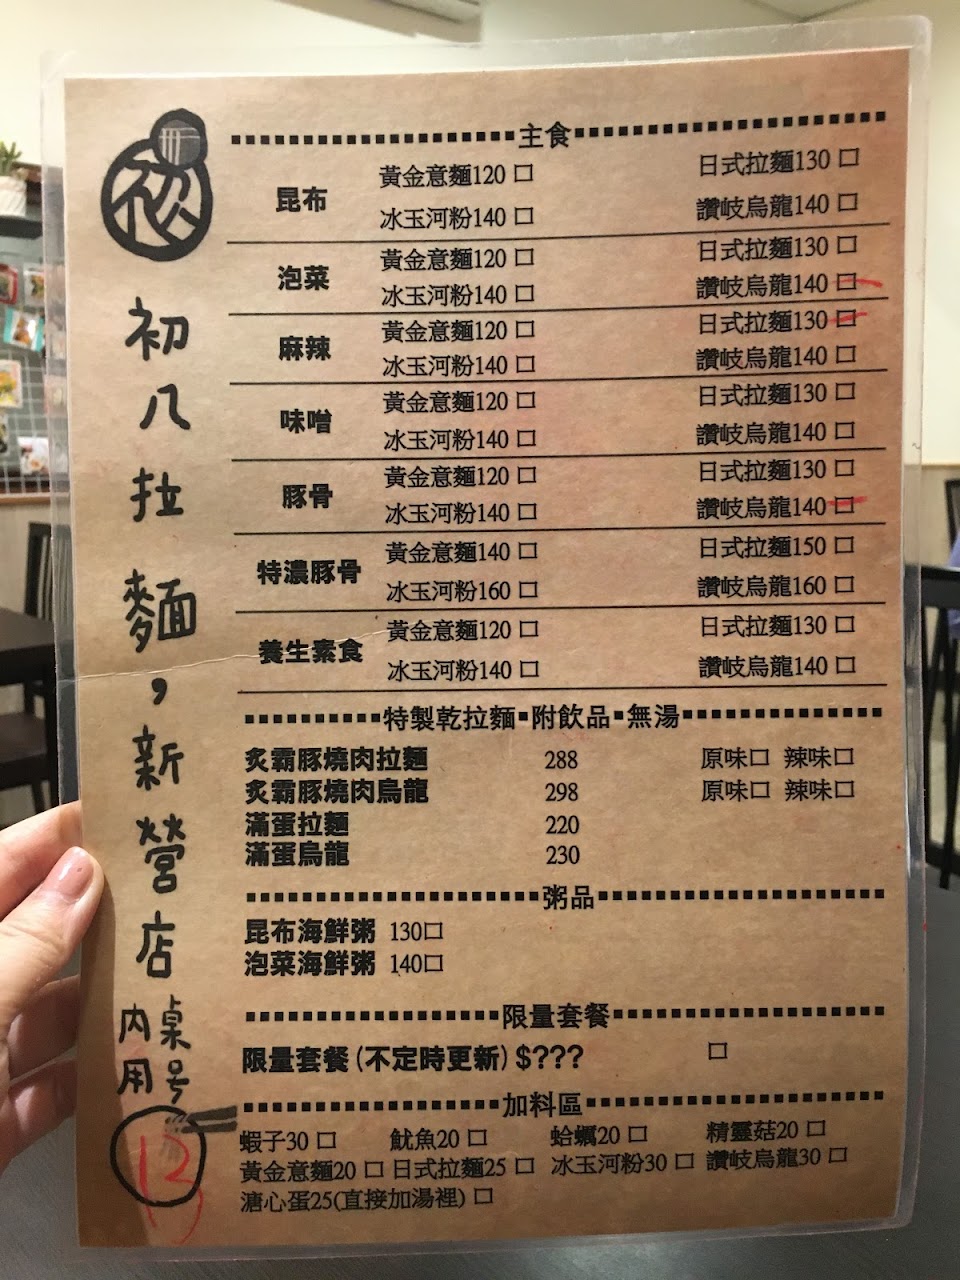 初
初八拉麵，新營店
內用
桌号
13
主食
昆布
黃金意麵120 □ 日式拉麵130 □
冰玉河粉140 □ 讚岐烏龍140 □
泡菜
黃金意麵120 □ 日式拉麵130 □
冰玉河粉140 □ 讚岐烏龍140 □
麻辣
黃金意麵120 □ 日式拉麵130 □
冰玉河粉140 □ 讚岐烏龍140 □
味噌
黃金意麵120 □ 日式拉麵130 □
冰玉河粉140 □ 讚岐烏龍140 □
豚骨
黃金意麵120 □ 日式拉麵130 □
冰玉河粉140 □ 讚岐烏龍140 □
特濃豚骨
黃金意麵140 □ 日式拉麵150 □
冰玉河粉160 □ 讚岐烏龍160 □
養生素食
黃金意麵120 □ 日式拉麵130 □
冰玉河粉140 □ 讚岐烏龍140 □
特製乾拉麵▪附飲品▪無湯
炙霸豚燒肉拉麵 288 原味□ 辣味□
炙霸豚燒肉烏龍 298 原味□ 辣味□
滿蛋拉麵 220
滿蛋烏龍 230
粥品
昆布海鮮粥 130□
泡菜海鮮粥 140□
限量套餐
限量套餐(不定時更新)$??? □
加料區
蝦子30 □ 魷魚20 □ 蛤蠣20 □ 精靈菇20 □
黃金意麵20 □ 日式拉麵25 □ 冰玉河粉30 □ 讚岐烏龍30 □
溏心蛋25(直接加湯裡) □